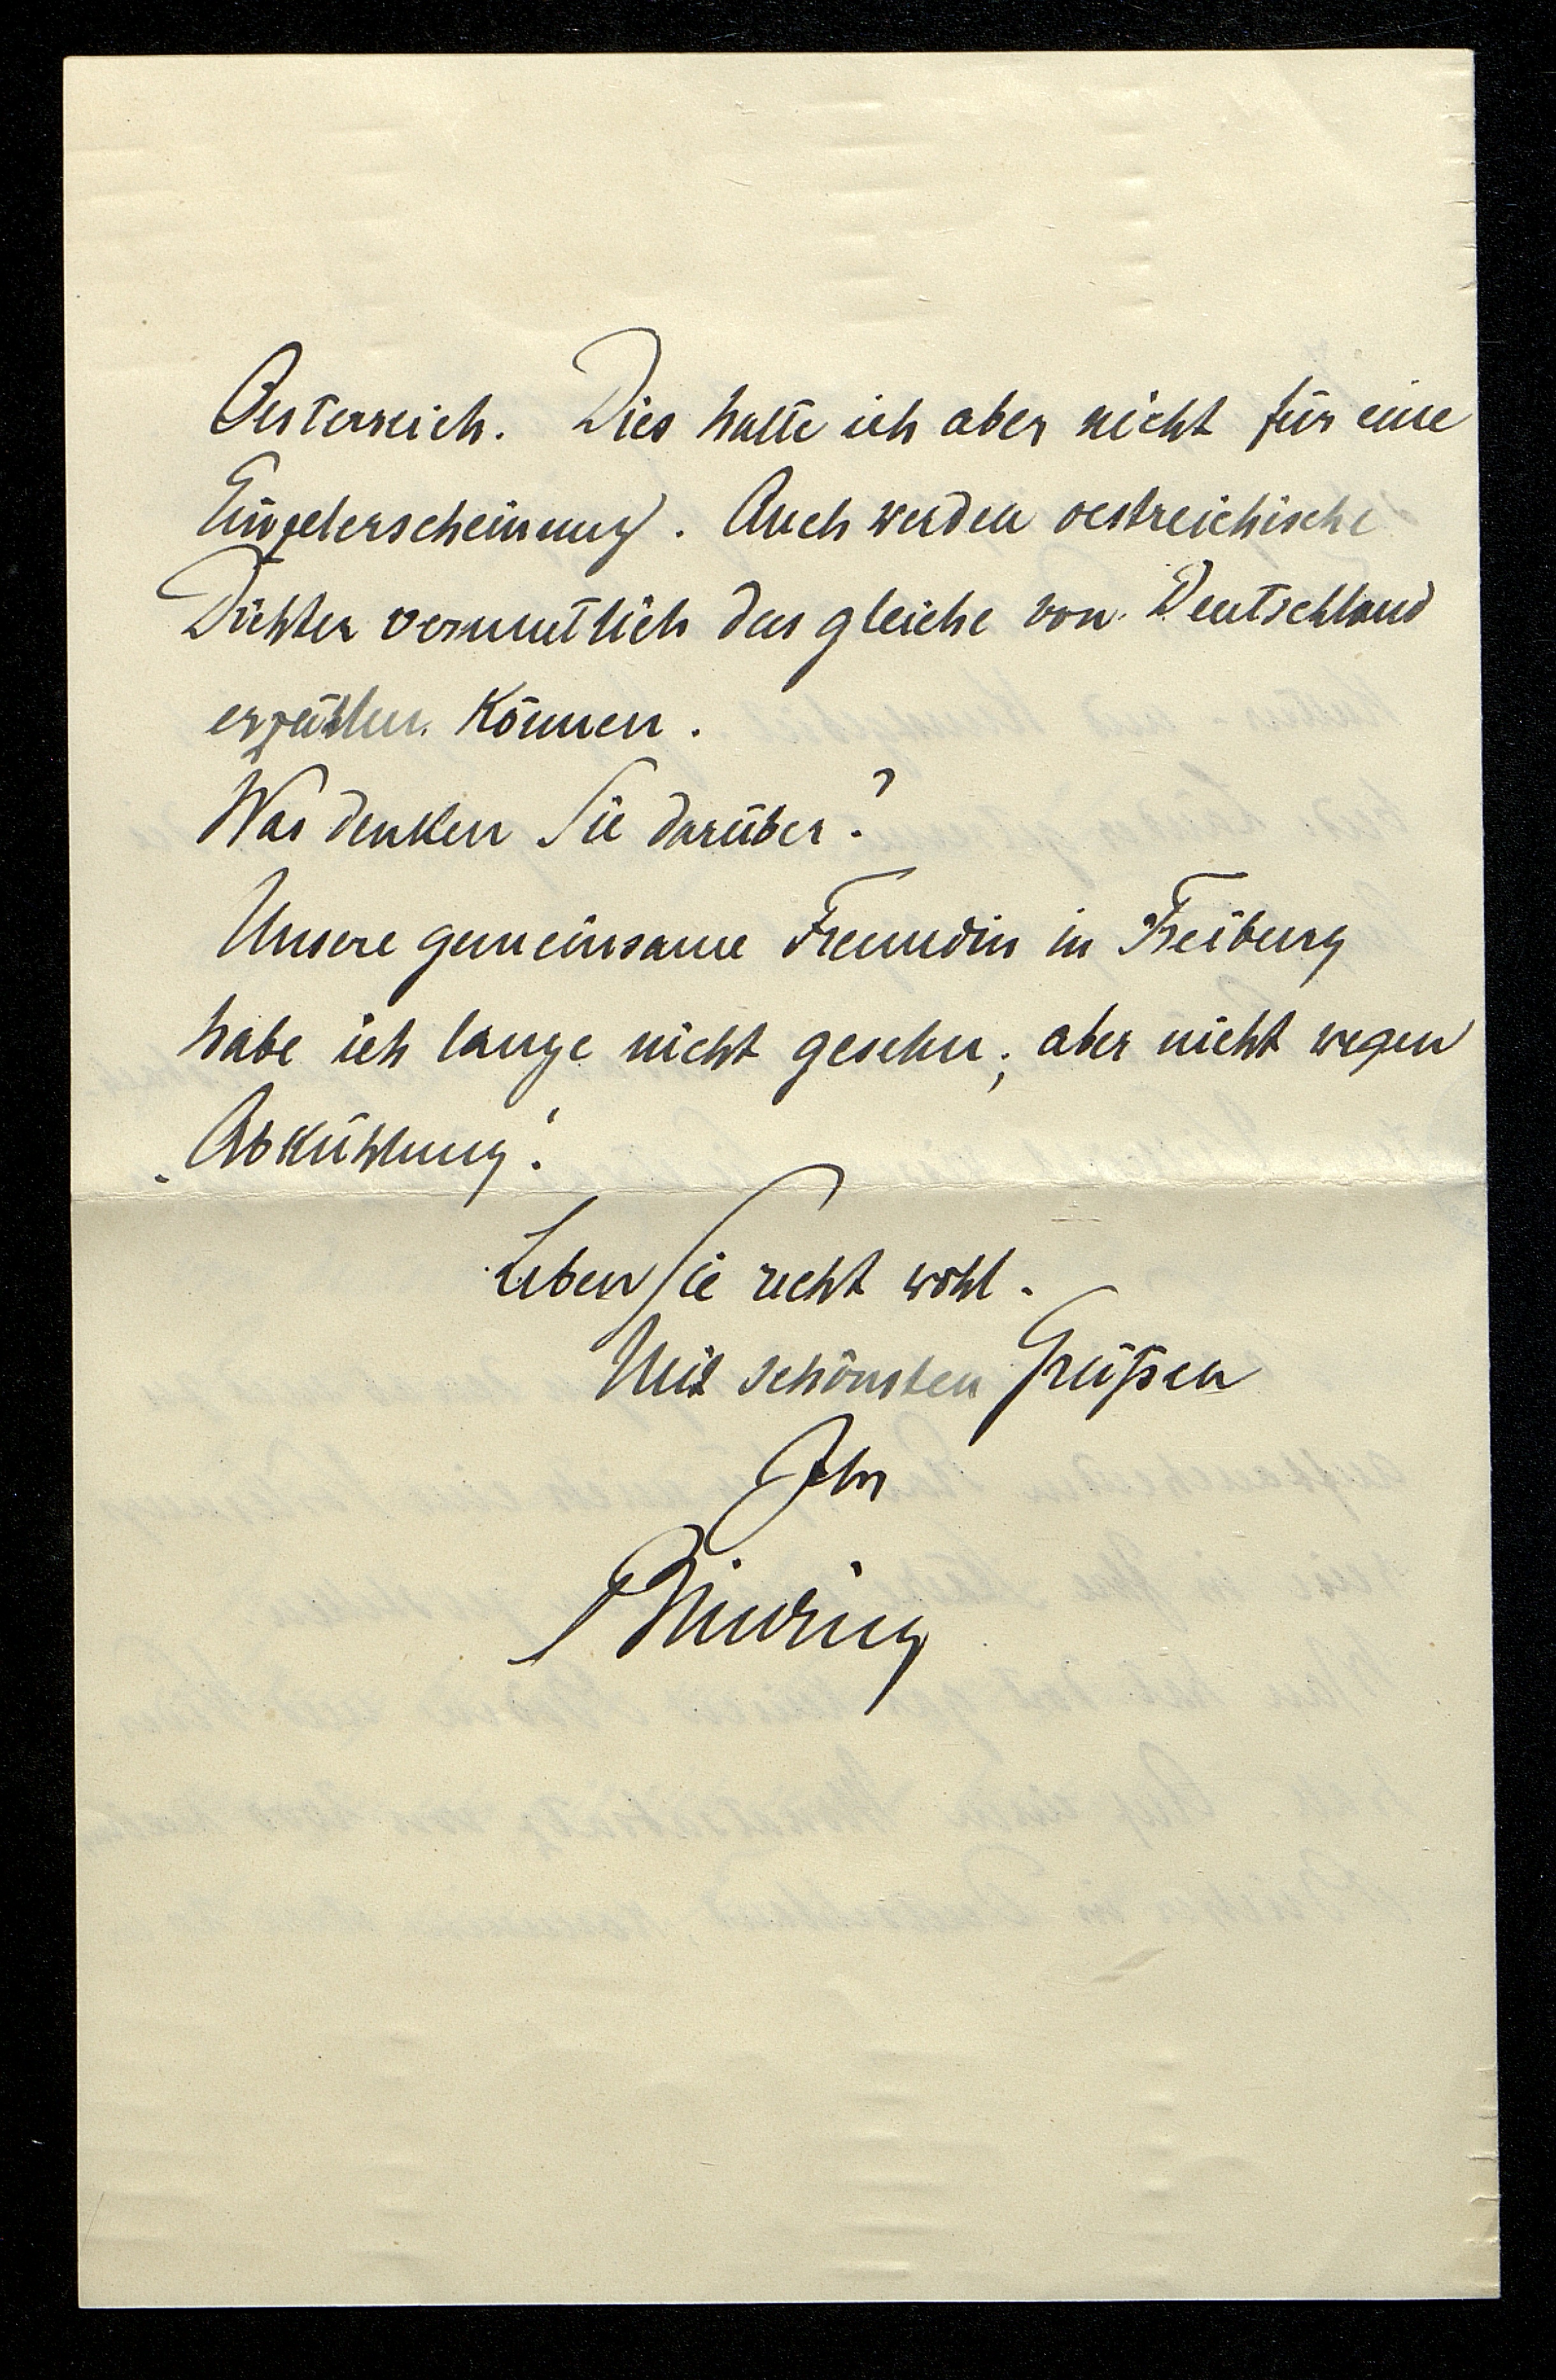 Oesterreich. Dies halte ich aber nicht für eine
Einzelerscheinung. Auch werden oestreichische
Dichter vermutlich das gleiche von Deutschland
erzählen können.
Was denken Sie darüber?
Unsere gemeinsame Freundin in Freiburg
habe ich lange nicht gesehn; aber nicht wegen
„Abkühlung“.
Leben Sie recht wohl.
Mit schönsten Grüßen
Ihr